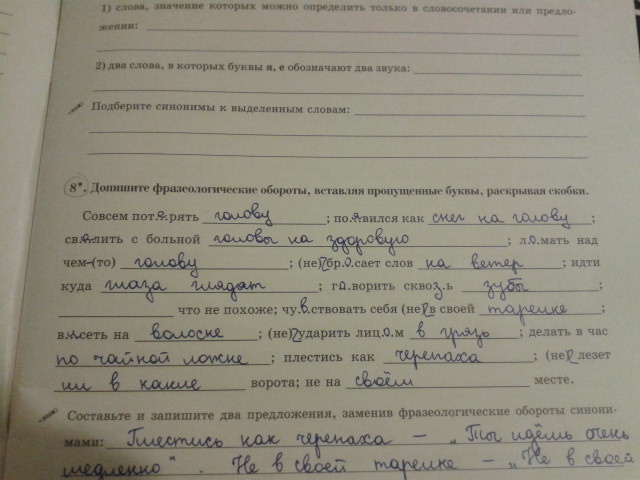 1) слова, значение которых можно определить только в словосочетании или предло-
жении:
2) два слова, в которых буквы я, е обозначают два звука:
Подберите синонимы к выделенным словам:
8*. Допишите фразеологические обороты, вставляя пропущенные буквы, раскрывая скобки.
Совсем пот.е.рять голову ; по.я.вился как снег на голову ;
св.а.лить с больной головы на здоровую ; л.о.мать над
чем-(то) голову ; (не) бр.о.сает слов на ветер ; идти
куда глаза глядят ; г.о.ворить сквоз.ь зубы ;
что не похоже; чу.в.ствовать себя (не) в своей тарелке ;
в.и.сеть на волоске ; (не) ударить лиц.о.м в грязь ; делать в час
по чайной ложке ; плестись как черепаха ; (не) лезет
ни в какие ворота; не на своём месте.
Составьте и запишите два предложения, заменив фразеологические обороты синони-
мами: Плестись как черепаха – „Ты идёшь очень
медленно“. Не в своей тарелке – „Не в своей